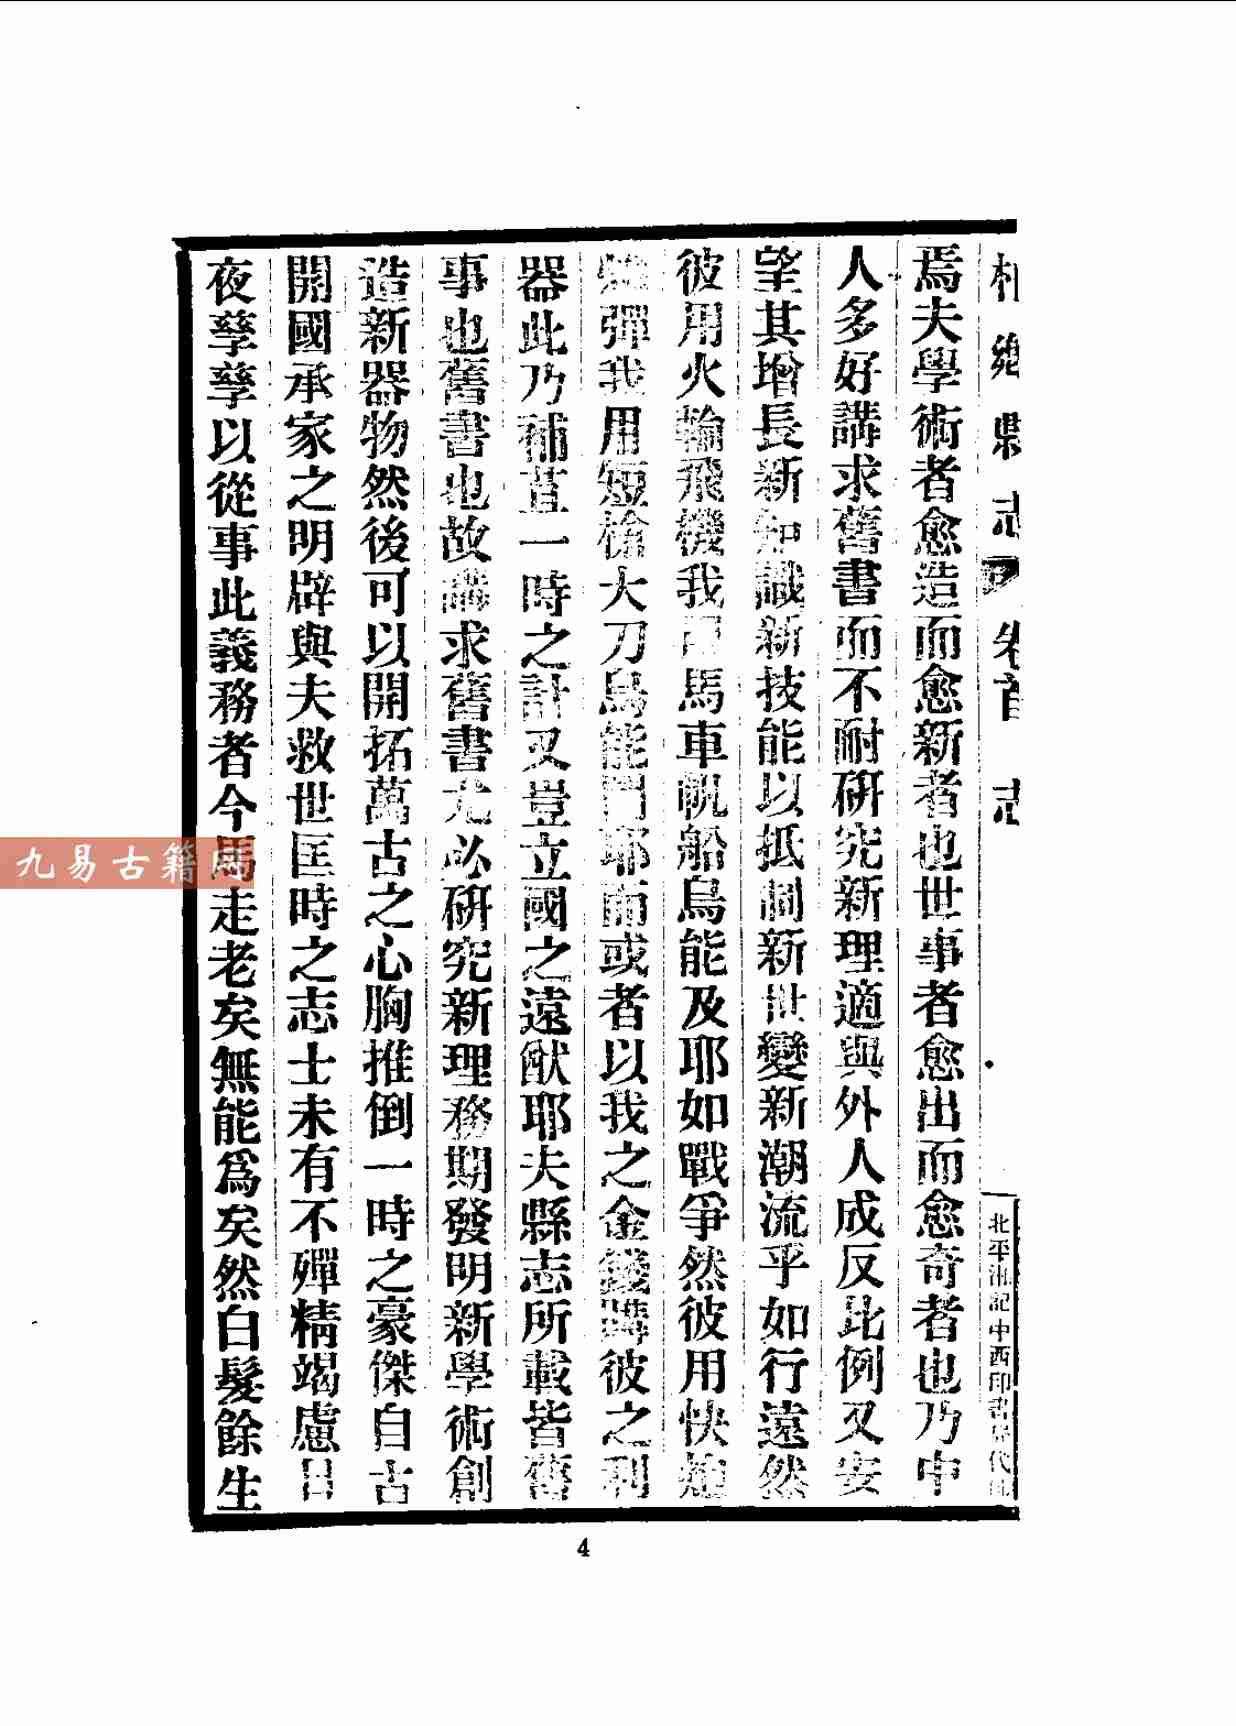 柏鄉縣志 卷首 志
北平 記中西印書局代
焉夫學術者愈造而愈新者也世事者愈出而愈奇者也乃中
人多好講求舊書而不耐研究新理適與外人成反比例又安
望其增長新知識新技能以抵制新世變新潮流乎如行遠然
彼用火輪飛機我用馬車帆船烏能及耶如戰爭然彼用快炮
炸彈我用短槍大刀烏能鬥耶而或者以我之金錢購彼之利
器此乃補苴一時之計又豈立國之遠猷耶夫縣志所載皆舊
事也舊書也故講求舊書尤必研究新理務期發明新學術創
造新器物然後可以開拓萬古之心胸推倒一時之豪傑自古
開國承家之明辟與夫救世匡時之志士未有不殫精竭慮日
夜孳孳以從事此義務者今馬走老矣無能爲矣然白髮餘生
4
九易古籍网